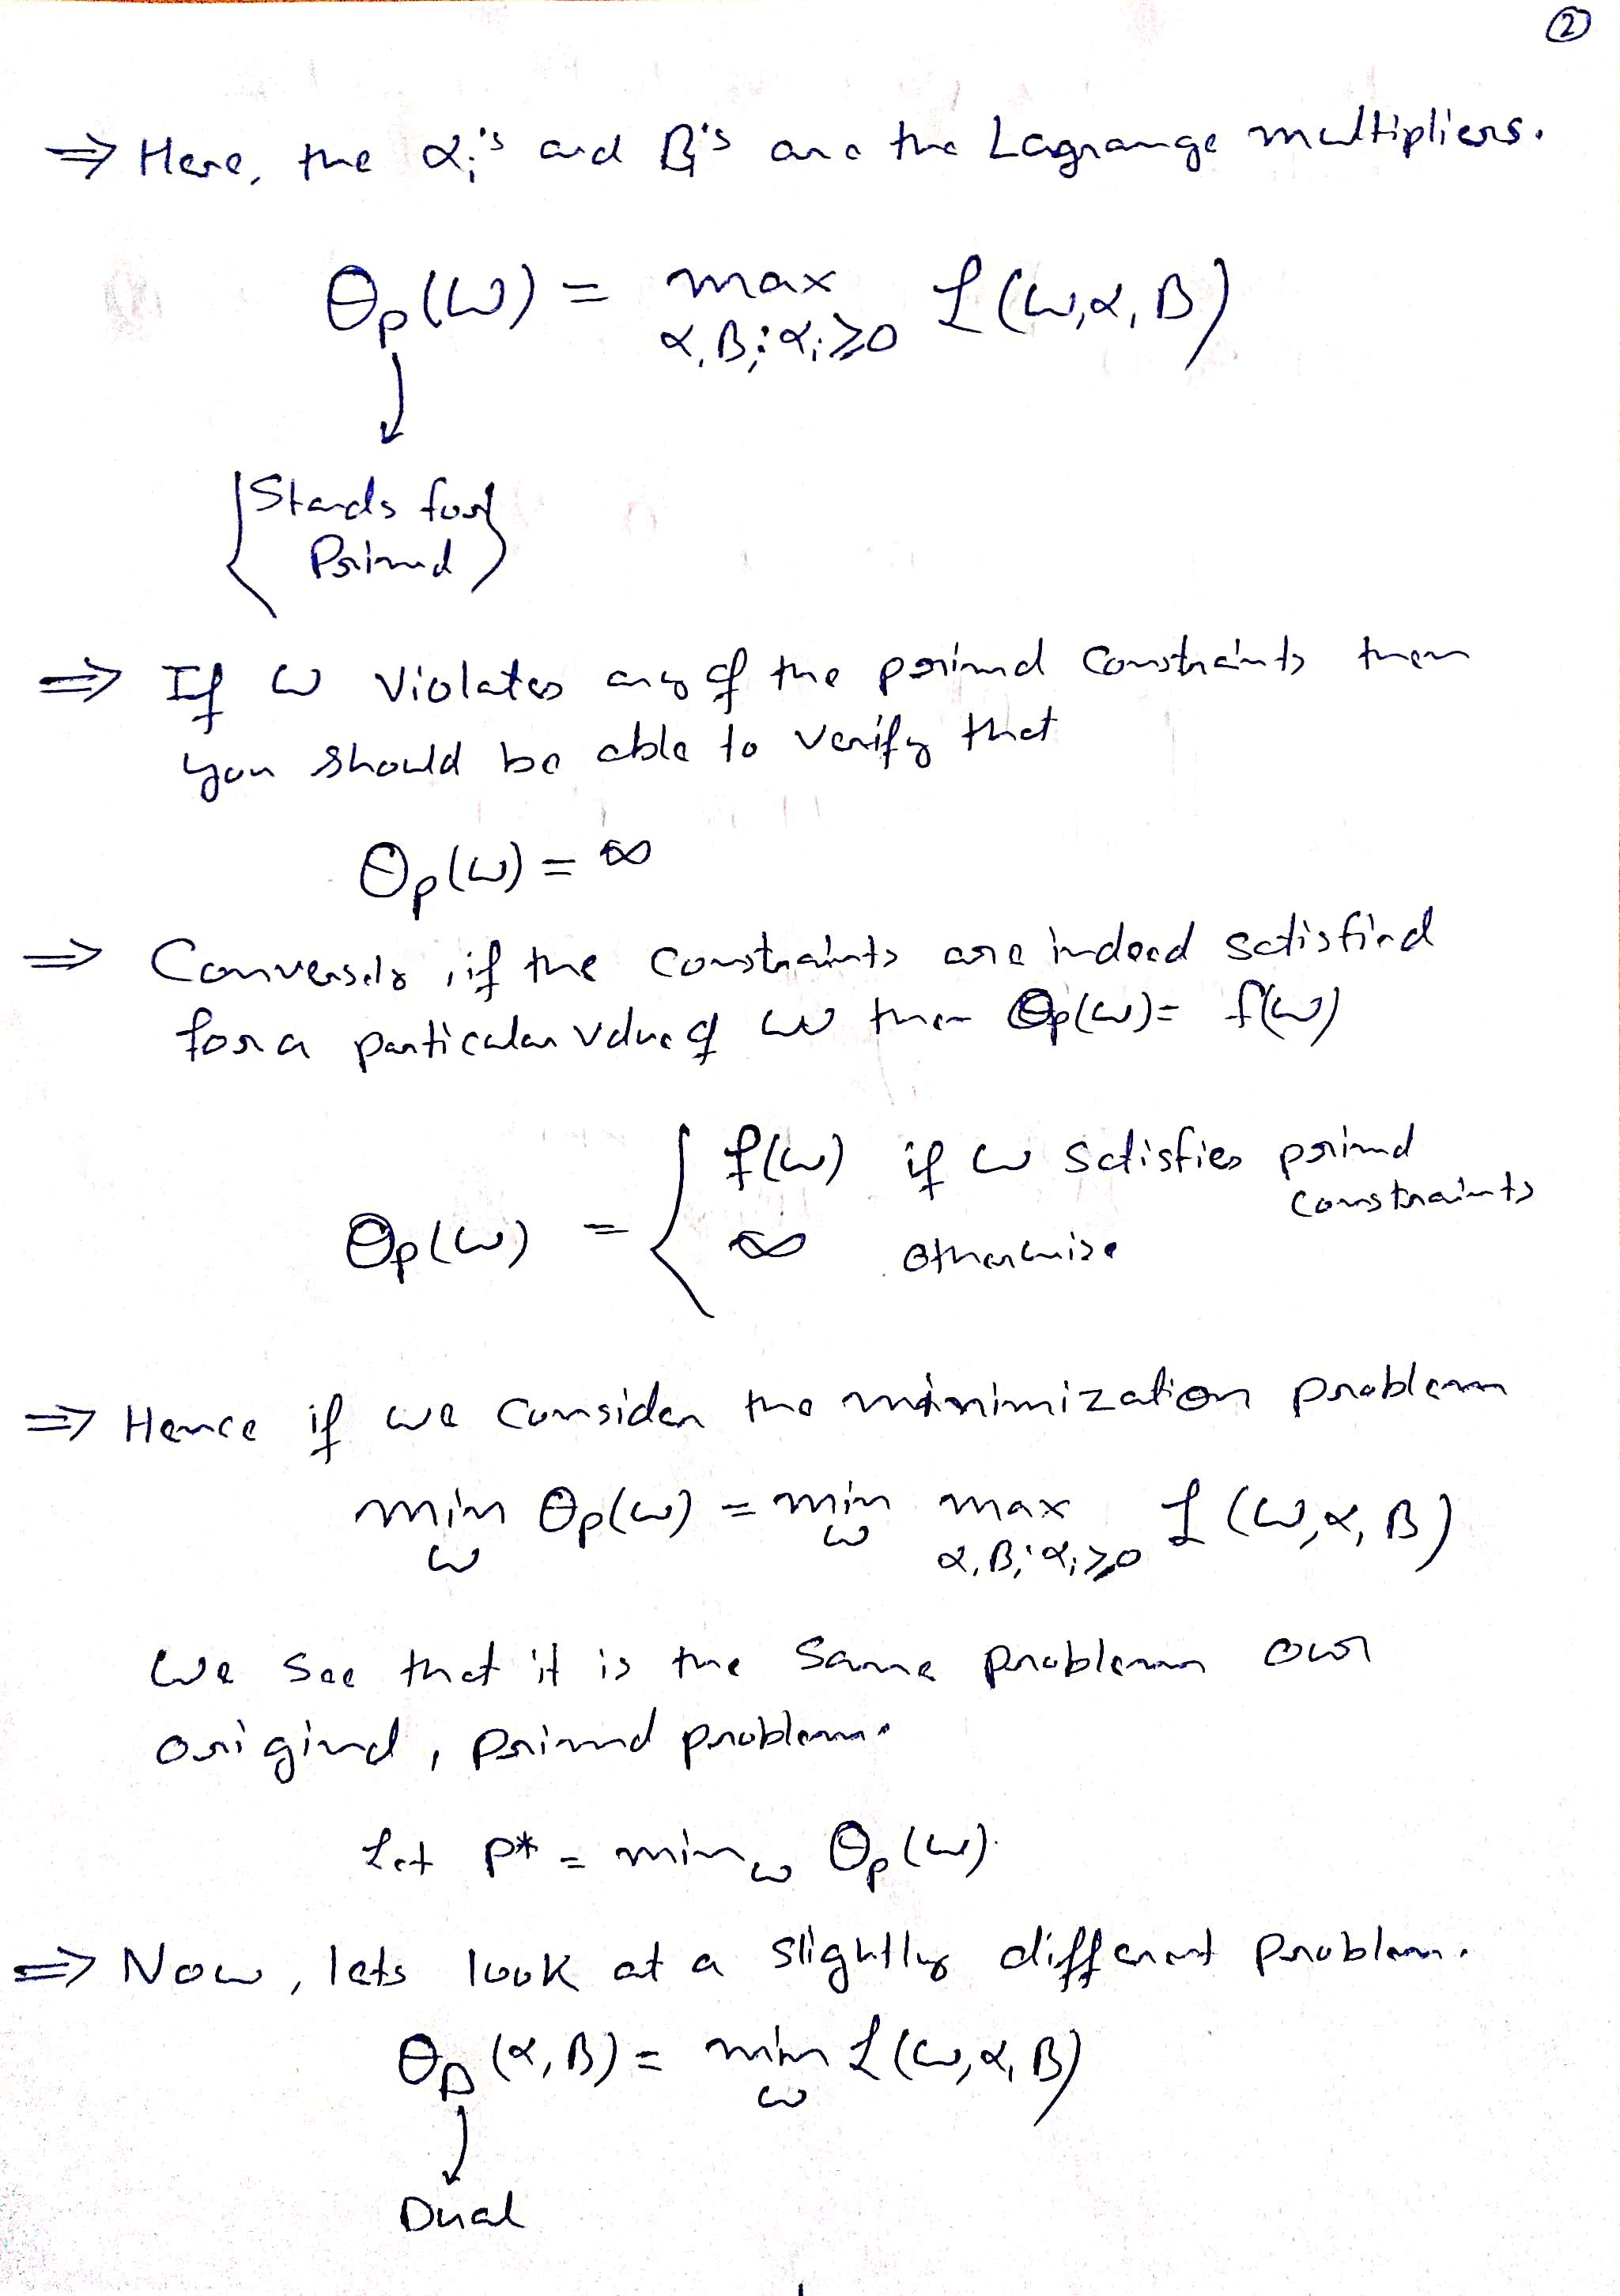 ②
⇒ Here, the αi's and βi's are the Lagrange multipliers.
θp(ω) = max L(ω,α,β)
α,β; αi≥0
{Stands for
Primal}
⇒ If ω violates any of the primal constraints then
you should be able to verify that
θp(ω) = ∞
⇒ Conversely, if the constraints are indeed satisfied
for a particular value of ω then θp(ω) = f(ω)
θp(ω) = { f(ω) if ω satisfies primal
constraints
∞ otherwise
⇒ Hence if we consider the minimization problem
min θp(ω) = min max L(ω,α,β)
ω ω α,β; αi≥0
We see that it is the same problem our
original, primal problem.
Let p* = minω θp(ω).
⇒ Now, lets look at a slightly different problem.
θD(α,β) = min L(ω,α,β)
ω
Dual